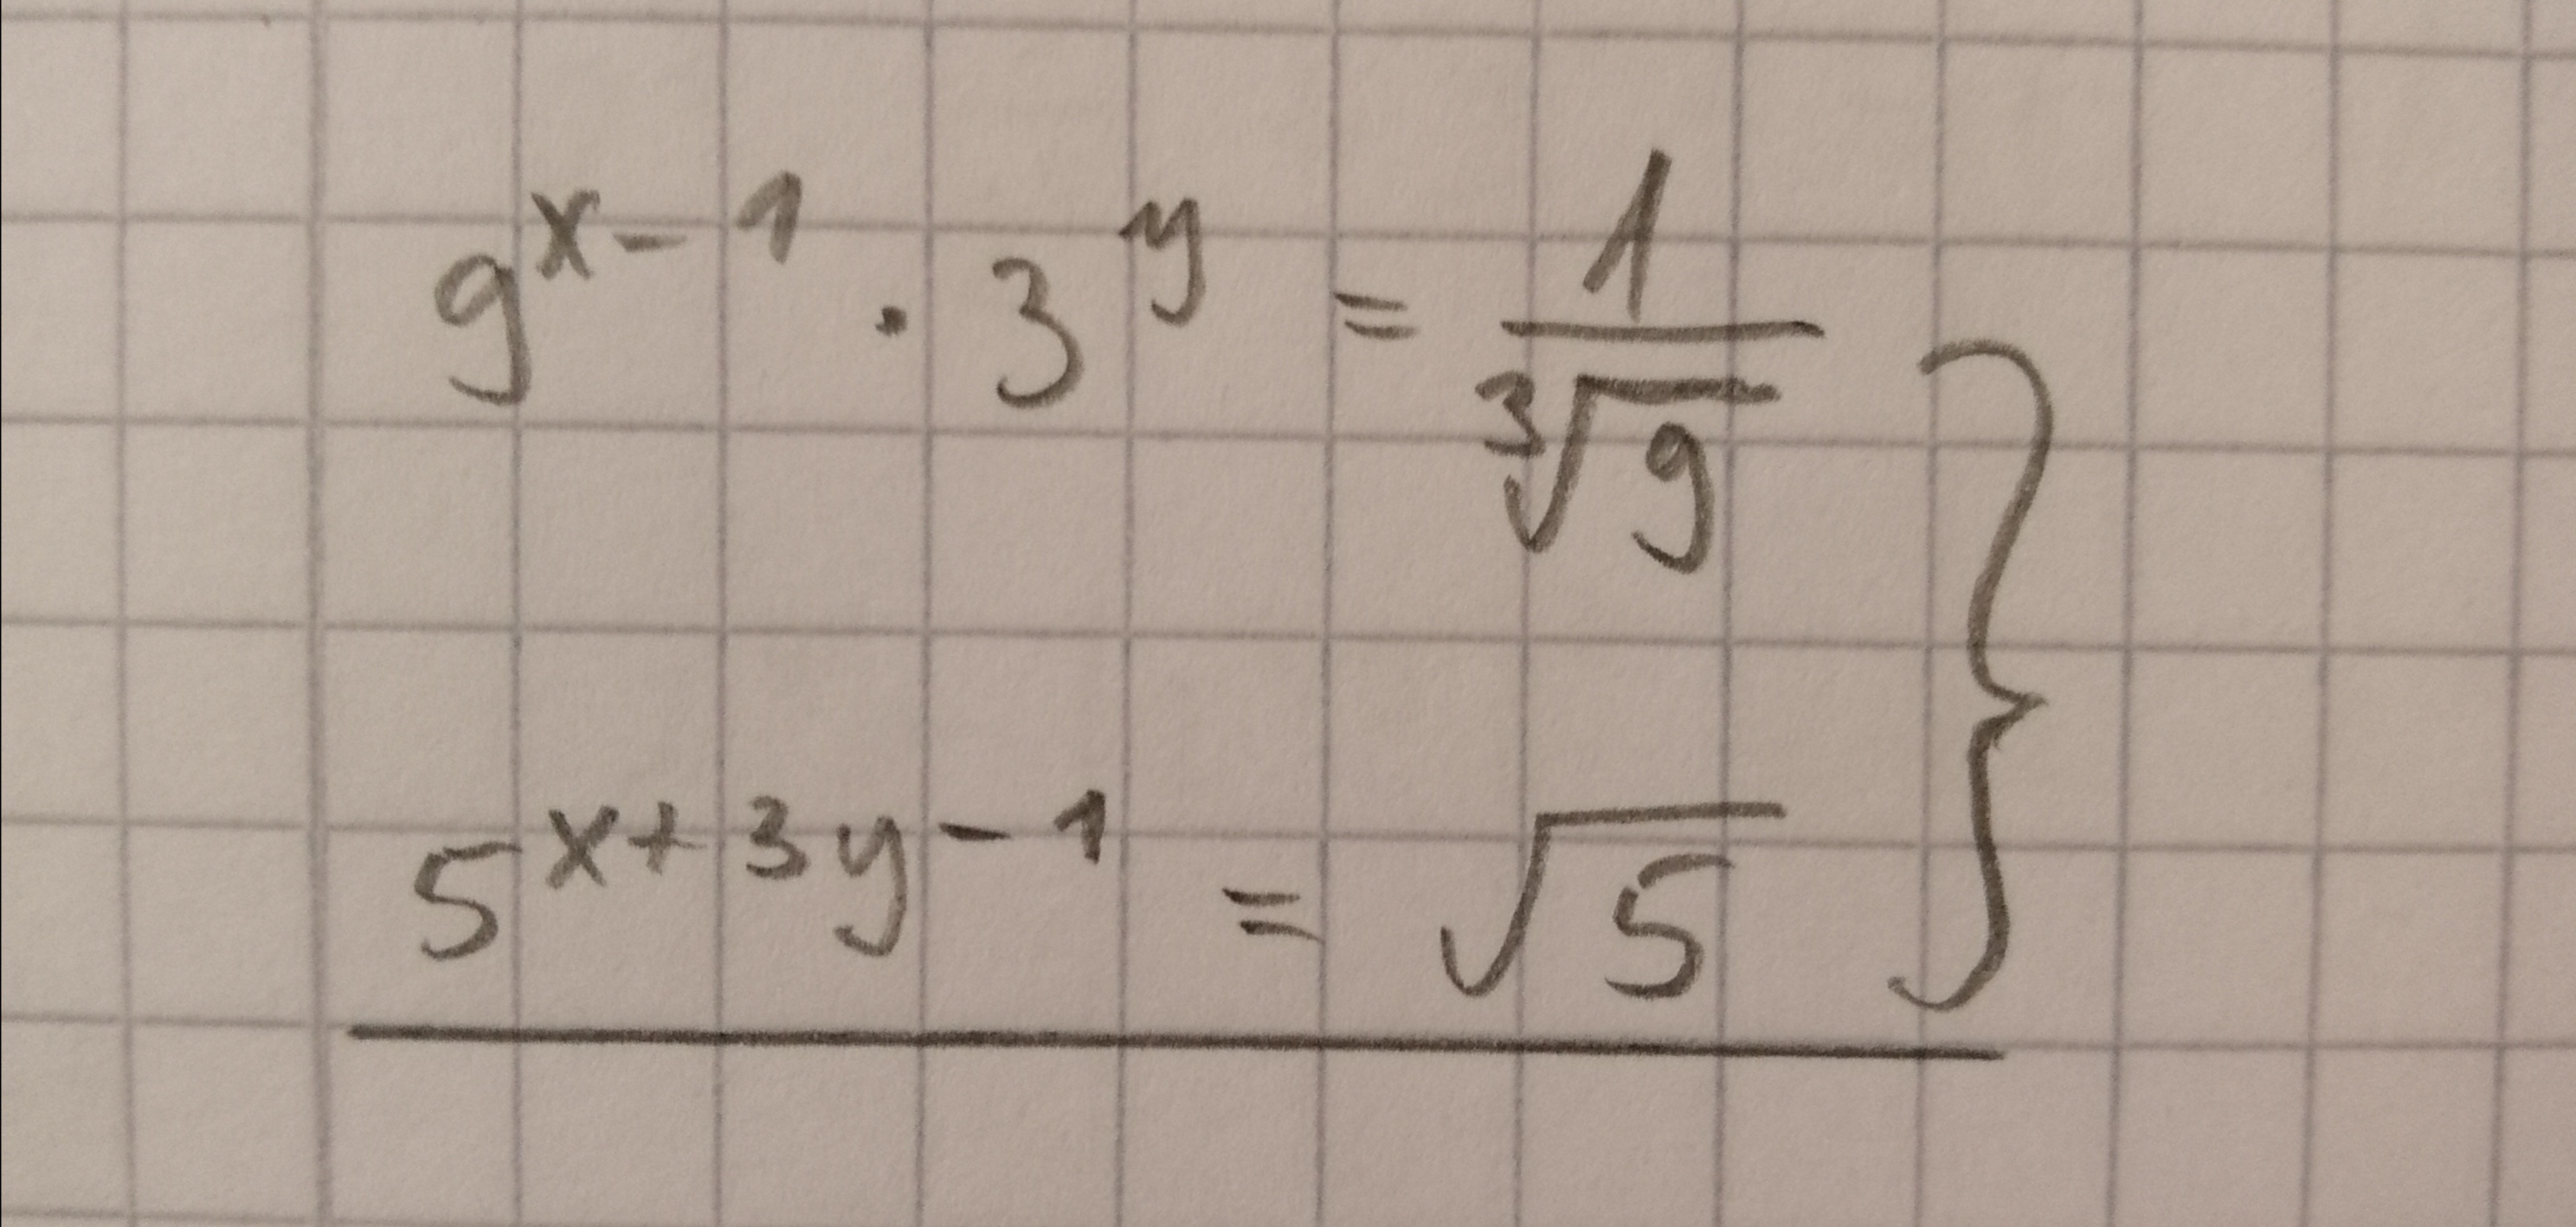 9^{x-1} · 3^y = \frac{1}{\sqrt[3]{9}}
5^{x+3y-1} = \sqrt{5}